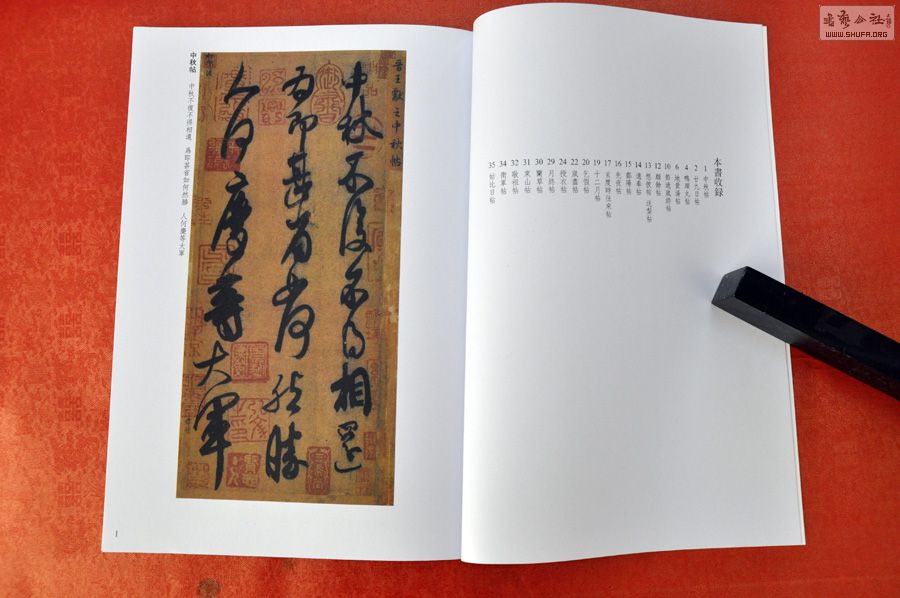 本書收錄
1 中秋帖
2 廿九日帖
4 鴨頭丸帖
6 地黃湯帖
10
12 帖
13 送梨帖
14 帖
15 鄱陽帖
16 先夜帖
17 玄度時往來帖
19 十二月帖
20 乞假帖
22 歲盡帖
24 授衣帖
29 月終帖
30 蘭草帖
31 東山帖
32 敬祖帖
34 衛軍帖
35 帖比日帖
晉王獻之中秋帖
中秋不復不得相還
為即甚省如何然勝
人何慶等大軍
中秋帖 中秋不復不得相還 為即甚省如何然勝 人何慶等大軍
1
WWW.SHUFA.ORG